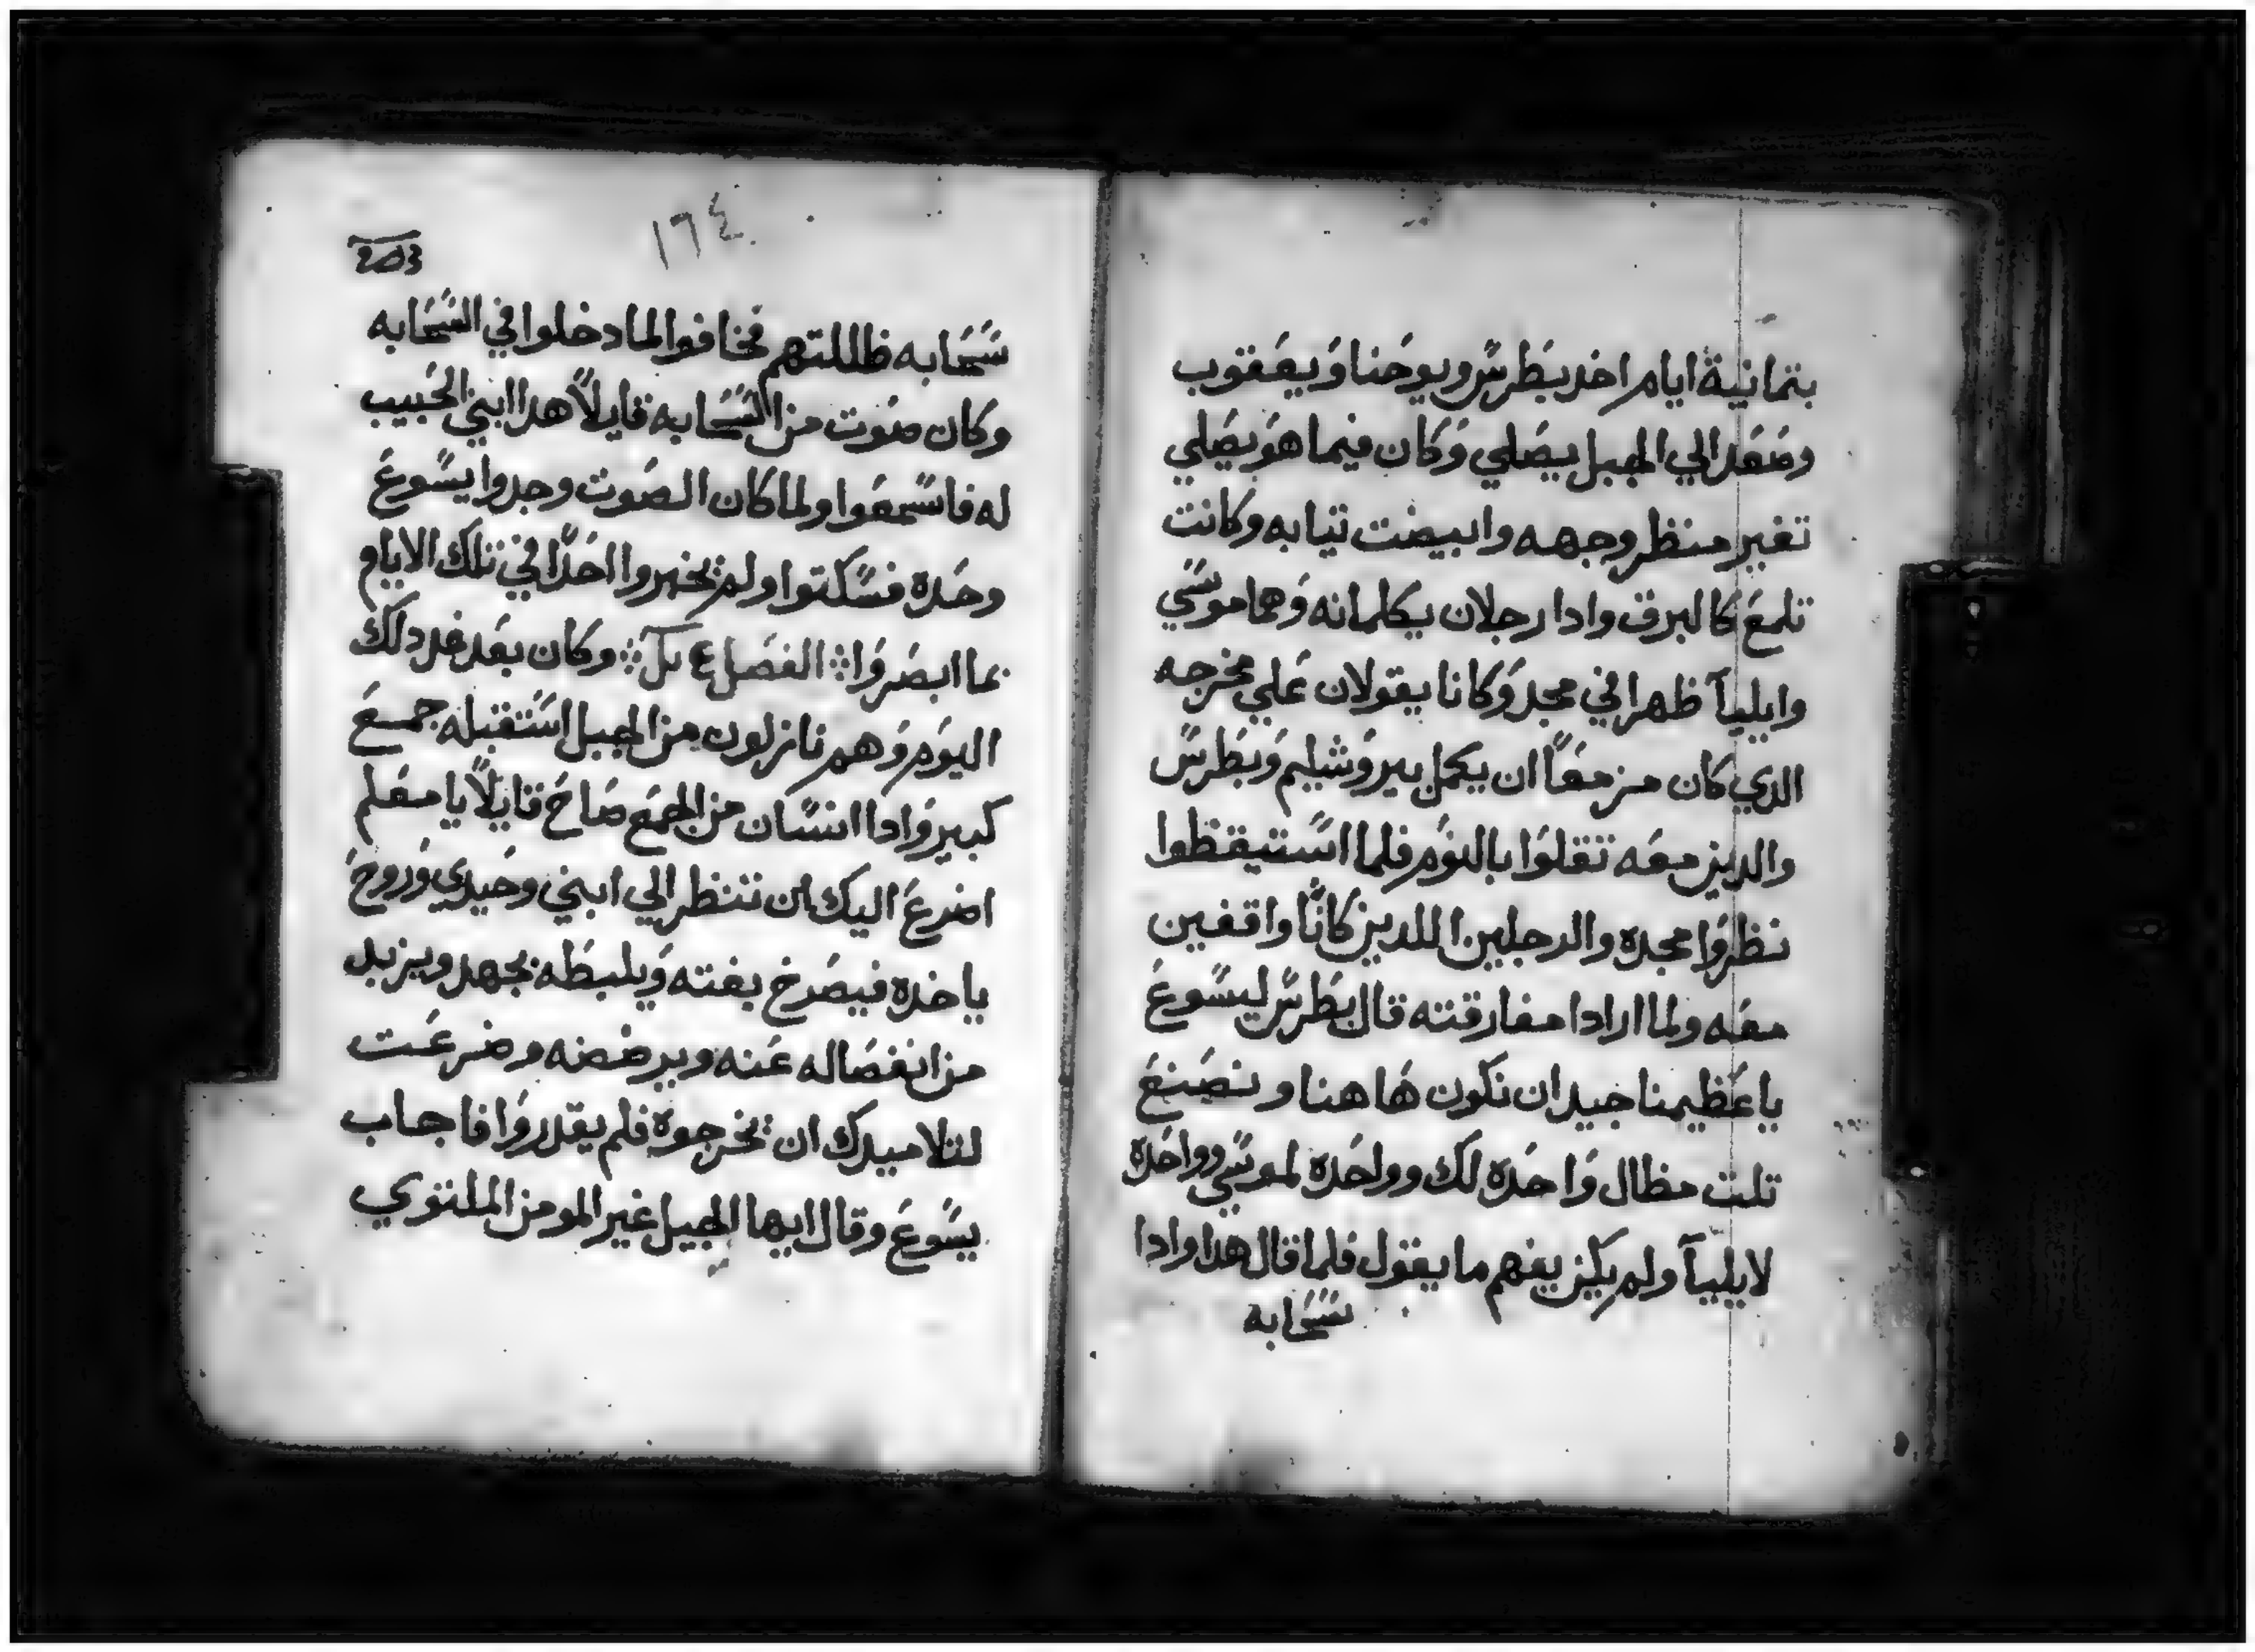 بتمانية ايام اخد بطرس ويوحنا ويعقوب
وصعد الي الجبل يصلي وكان فيما هو يصلي
تغير منظر وجهه وابيضت تيابه وكانت
تلمع كالبرق وادا رجلان يكلمانه وهما موسي
وايليا ظهرا في مجد وكانا يقولان علي مخرجه
الدي كان مزمعا ان يكمل بيروشليم وبطرس
والدين معه تقلوا بالنوم فلما استيقظوا
نظروا مجده والرجلين اللدين كانا واقفين
معه ولما ارادا مفارقته قال بطرس ليسوع
يا عظيمنا جيد ان نكون هاهنا ونصنع
تلت مظال واحده لك وواحده لموسي وواحده
لايليا ولم يكن يفهم ما يقول فلما قال هدا وادا
سحابه
١٦٤
سحابه ظللتهم فخافوا لما دخلوا في السحابه
وكان صوت من السحابه قايلا هدا ابني الحبيب
له فاسمعوا ولما كان الصوت وجدوا يسوع
وحده فسكتوا ولم يخبروا احدا في تلك الايام
بما ابصروا الفصل وكان بعد غد دلك
اليوم وهم نازلون من الجبل استقبله جمع
كبير وادا انسان من الجمع صاح قايلا يا معلم
اضرع اليك ان تنظر الي ابني وحيدي وروح
ياخده فيصرخ بغته ويلبطه بجهد ويزبد
من انفصاله عنه ويرضضه وضرعت
لتلاميدك ان يخرجوه فلم يقدروا فاجاب
يسوع وقال ايها الجيل غير المومن الملتوي